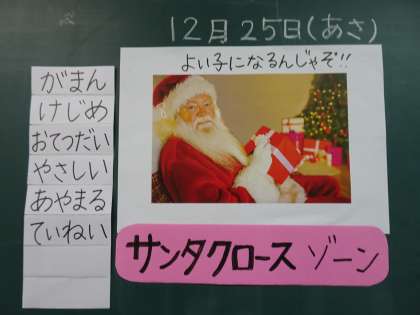 12月25日(あさ)
よい子になるんじゃぞ!!
がまん
けじめ
おてつだい
やさしい
あやまる
ていねい
サンタクロース ゾーン